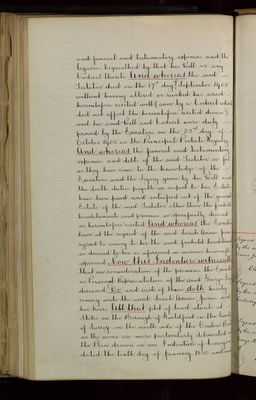 and funeral and testamentary expenses and the
legacies bequeathed by that her Will or any
Codicil thereto And whereas the said
Testator died on the 17th day of September 1900
without having altered or revoked his said
hereinbefore recited will (save by a Codicil which
did not affect the hereinbefore recited devise)
and his said Will and Codicil were duly
proved by the Executors on the 25th day of
October 1900 in the Principal Probate Registry
And whereas the funeral and testamentary
expenses and debts of the said Testator so far
as they have come to the knowledge of the
Executors and the legacy given by the Will and
the death duties payable in respect to his Estate
have been paid and satisfied out of the general
Estate of the said Testator other than the
hereditaments and premises so specifically devised
as hereinbefore recited And whereas the
have at the request of the said Sarah Annie
agreed to convey to her the said freehold
so devised to her as aforesaid in manner hereinafter
appearing Now this Indenture witnesseth
that in consideration of the premises the
as Personal Representatives of the said George
deceased do and each of them doth hereby
convey unto the said Sarah Annie and
her heirs All that plot of land situate at
Stoke in the Borough of Guildford in the County
of Surrey on the north side of the Road
as the same is more particularly delineated in
the Plan drawn on an Indenture of Conveyance
dated the tenth day of January